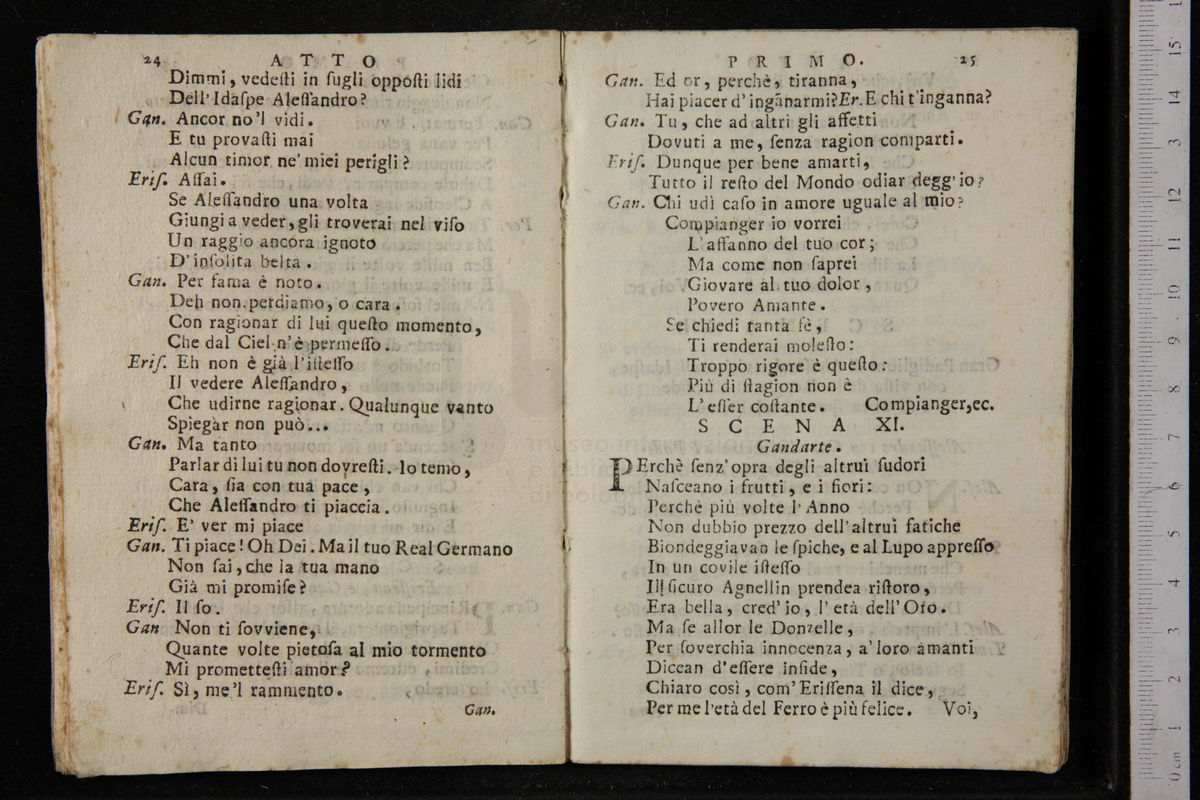 24 ATTO
Dimmi, vedeſti in ſugli oppoſti lidi
Dell' Idaſpe Aleſſandro?
Gan. Ancor no'l vidi.
E tu provaſti mai
Alcun timor ne' miei perigli?
Eriſ. Aſſai.
Se Aleſſandro una volta
Giungi a veder, gli troverai nel viſo
Un raggio ancora ignoto
D'inſolita beltà.
Gan. Per fama è noto.
Deh non perdiamo, o cara.
Con ragionar di lui queſto momento,
Che dal Ciel n'è permeſſo.
Eriſ. Eh non è già l'iſteſſo
Il vedere Aleſſandro,
Che udirne ragionar. Qualunque vanto
Spiegàr non può...
Gan. Ma tanto
Parlar di lui tu non dovreſti. Io temo,
Cara, ſia con tua pace,
Che Aleſſandro ti piaccia.
Eriſ. E' ver mi piace
Gan. Ti piace! Oh Dei. Ma il tuo Real Germano
Non ſai, che la tua mano
Già mi promiſe?
Eriſ. Il ſo.
Gan Non ti ſovviene,
Quante volte pietoſa al mio tormento
Mi prometteſti amor?
Eriſ. Sì, me'l rammento.
Gan.
PRIMO. 25
Gan. Ed or, perchè, tiranna,
Hai piacer d'ingãnarmi? Er. E chi t'inganna?
Gan. Tu, che ad altri gli affetti
Dovuti a me, ſenza ragion comparti.
Eriſ. Dunque per bene amarti,
Tutto il reſto del Mondo odiar degg'io?
Gan. Chi udì caſo in amore uguale al mio?
Compianger io vorrei
L'affanno del tuo cor;
Ma come non ſaprei
Giovare al tuo dolor,
Povero Amante.
Se chiedi tanta fè,
Ti renderai moleſto:
Troppo rigore è queſto:
Più di ſtagion non è
L'eſſer coſtante. Compianger, ec.
SCENA XI.
Gandarte.
PErchè ſenz'opra degli altrui ſudori
Naſceano i frutti, e i fiori:
Perchè più volte l'Anno
Non dubbio prezzo dell'altrui fatiche
Biondeggiavan le ſpiche, e al Lupo appreſſo
In un covile iſteſſo
Il ſicuro Agnellin prendea riſtoro,
Era bella, cred'io, l'età dell'Oro.
Ma ſe allor le Donzelle,
Per ſoverchia innocenza, a' loro amanti
Dicean d'eſſere infide,
Chiaro così, com' Eriſſena il dice,
Per me l'età del Ferro è più felice. Voi,